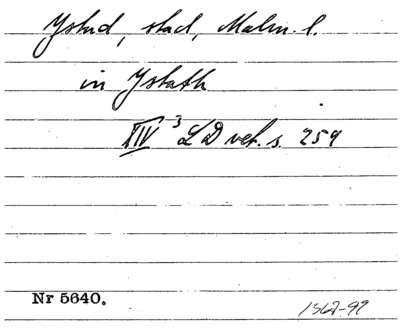 Ystad, stad, Malm. l.
in Ystath
XIV 3 LD vet. s. 259
Nr 5640.
1367-97